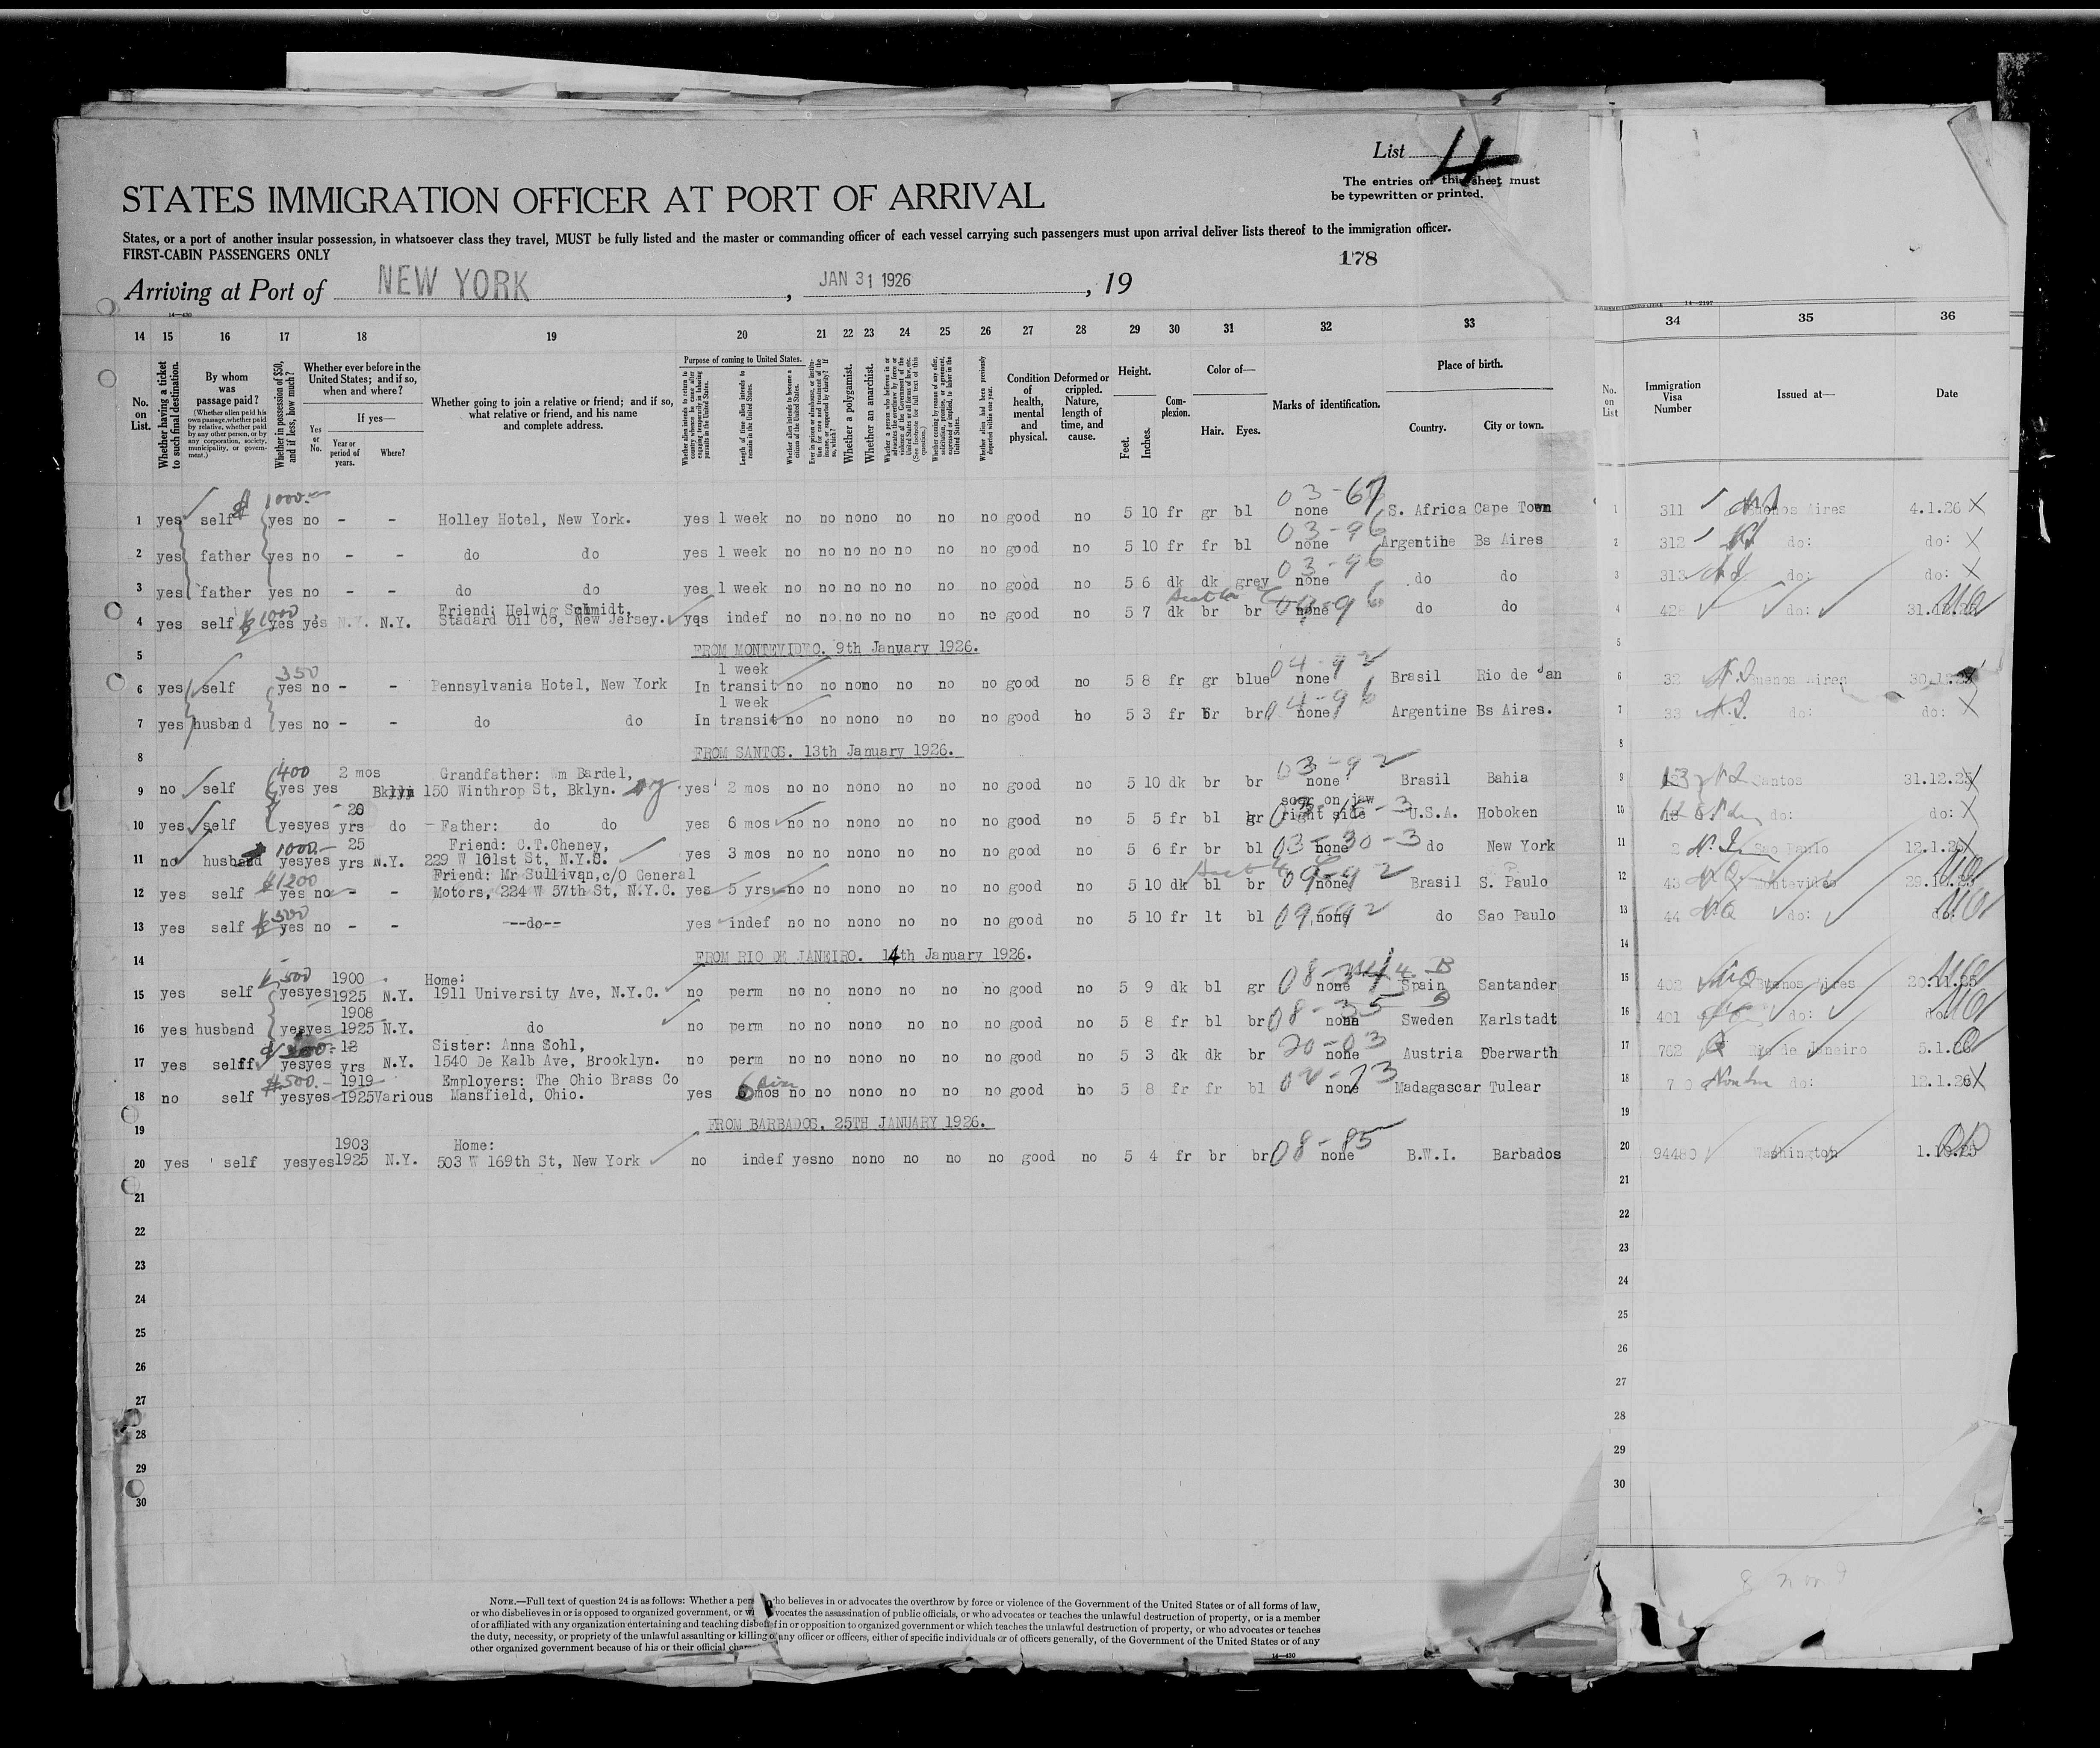 List 4
The entries on this sheet must
be typewritten or printed.
STATES IMMIGRATION OFFICER AT PORT OF ARRIVAL
States, or a port of another insular possession, in whatsoever class they travel, MUST be fully listed and the master or commanding officer of each vessel carrying such passengers must upon arrival deliver lists thereof to the immigration officer.
FIRST-CABIN PASSENGERS ONLY
178
Arriving at Port of NEW YORK, JAN 31 1926, 19
14—430
14—2197
14 15 16 17 18 19 20 21 22 23 24 25 26 27 28 29 30 31 32 33 34 35 36
No. on List.
Whether having a ticket to such final destination.
By whom was passage paid?
(Whether alien paid his own passage, whether paid by relative, whether paid by any other person, or by any corporation, society, municipality, or government.)
Whether in possession of $50, and if less, how much?
Whether ever before in the United States; and if so, when and where?
If yes—
Yes or No.
Year or period of years.
Where?
Whether going to join a relative or friend; and if so, what relative or friend, and his name and complete address.
Purpose of coming to United States.
Whether alien intends to return to country whence he came after engaging temporarily in laboring pursuits in the United States.
Length of time alien intends to remain in the United States.
Whether alien intends to become a citizen of the United States.
Ever in prison or almshouse, or institution for care and treatment of the insane, or supported by charity? If so, which?
Whether a polygamist.
Whether an anarchist.
Whether a person who believes in or advocates the overthrow by force or violence of the Government of the United States or all forms of law, etc. (See footnote for full text of this question.)
Whether coming by reason of any offer, solicitation, promise, or agreement, expressed or implied, to labor in the United States.
Whether alien had been previously deported within one year.
Condition of health, mental and physical.
Deformed or crippled. Nature, length of time, and cause.
Height.
Feet. Inches.
Complexion.
Color of—
Hair. Eyes.
Marks of identification.
Place of birth.
Country. City or town.
No. on List
Immigration Visa Number
Issued at—
Date
$ 1000.- 03-67
1 yes self yes no - - Holley Hotel, New York. yes 1 week no no nono no no no good no 5 10 fr gr bl none S. Africa Cape Town 1 311 Buenos Aires 4.1.26 X
03-96
2 yes father yes no - - do do yes 1 week no no no no no no no good no 5 10 fr fr bl none Argentine Bs Aires 2 312 do: do: X
03-96
3 yes father yes no - - do do yes 1 week no no no no no no no good no 5 6 dk dk grey none do do 3 313 do: do: X
Friend: Helwig Schmidt,
4 yes self $1000 yes yes N.Y. N.Y. Stadard Oil Co, New Jersey. yes indef no no no no no no no good no 5 7 dk br br none 09-96 do do 4 428 do:
5 FROM MONTEVIDEO. 9th January 1926. 5
350 1 week 04-92
6 yes self yes no - - Pennsylvania Hotel, New York In transit no no nono no no no good no 5 8 fr gr blue none Brasil Rio de Jan 6 32 Buenos Aires
1 week 04-96
7 yes husband yes no - - do do In transit no no nono no no no good no 5 3 fr br br none Argentine Bs Aires. 7 33 do: do: X
8 FROM SANTOS. 13th January 1926. 8
400 2 mos Grandfather: Wm Bardel, 03-92
9 no self yes yes Bklyn 150 Winthrop St, Bklyn. yes 2 mos no no nono no no no good no 5 10 dk br br none Brasil Bahia 9 13 Santos 31.12.25 X
20 scar on jaw
10 yes self yesyes yrs do - Father: do do yes 6 mos no no nono no no no good no 5 5 fr bl gr right side U.S.A. Hoboken 10 do: do: X
1000.- 25 Friend: C.T.Cheney,
11 no husband yesyes yrs N.Y. 229 W 101st St, N.Y.C. yes 3 mos no no nono no no no good no 5 6 fr br bl 03-30-3 none do New York 11 2 Sao Paulo 12.1.26 X
$1200 Friend: Mr Sullivan,c/O General
12 yes self yes no - - Motors, 224 W 57th St, N.Y.C. yes 5 yrs no no nono no no no good no 5 10 dk bl br 09-92 none Brasil S. Paulo 12 43 Montevideo
$500
13 yes self yes no - - --do-- yes indef no no nono no no no good no 5 10 fr lt bl 09-92 none do Sao Paulo 13 44 do: do:
14 FROM RIO DE JANEIRO. 14th January 1926. 14
$500 1900 Home:
15 yes self yesyes 1925 N.Y. 1911 University Ave, N.Y.C. no perm no no nono no no no good no 5 9 dk bl gr none Spain Santander 15 402 Buenos Aires 20.11.25
1908 08-35
16 yes husband yesyes 1925 N.Y. do no perm no no nono no no no good no 5 8 fr bl br none Sweden Karlstadt 16 401 do: do:
12 Sister: Anna Sohl, 20-03
17 yes self yesyes yrs N.Y. 1540 De Kalb Ave, Brooklyn. no perm no no nono no no no good no 5 3 dk dk br none Austria Oberwarth 17 762 Rio de Janeiro 5.1.26
$500.- 1919 Employers: The Ohio Brass Co
18 no self yesyes 1925 Various Mansfield, Ohio. yes 6 mos no no nono no no no good no 5 8 fr fr bl none Madagascar Tulear 18 do: 12.1.26 X
19 FROM BARBADOS. 25TH JANUARY 1926. 19
1903 Home:
20 yes self yesyes 1925 N.Y. 503 W 169th St, New York no indef yes no nono no no no good no 5 4 fr br br 08-85 none B.W.I. Barbados 20 94480 Washington
21 21
22 22
23 23
24 24
25 25
26 26
27 27
28 28
29 29
30 30
NOTE.—Full text of question 24 is as follows: Whether a per who believes in or advocates the overthrow by force or violence of the Government of the United States or of all forms of law,
or who disbelieves in or is opposed to organized government, or w vocates the assassination of public officials, or who advocates or teaches the unlawful destruction of property, or is a member
of or affiliated with any organization entertaining and teaching disbelief in or opposition to organized government or which teaches the unlawful destruction of property, or who advocates or teaches
the duty, necessity, or propriety of the unlawful assaulting or killing of any officer or officers, either of specific individuals or of officers generally, of the Government of the United States or of any
other organized government because of his or their official char
14—430